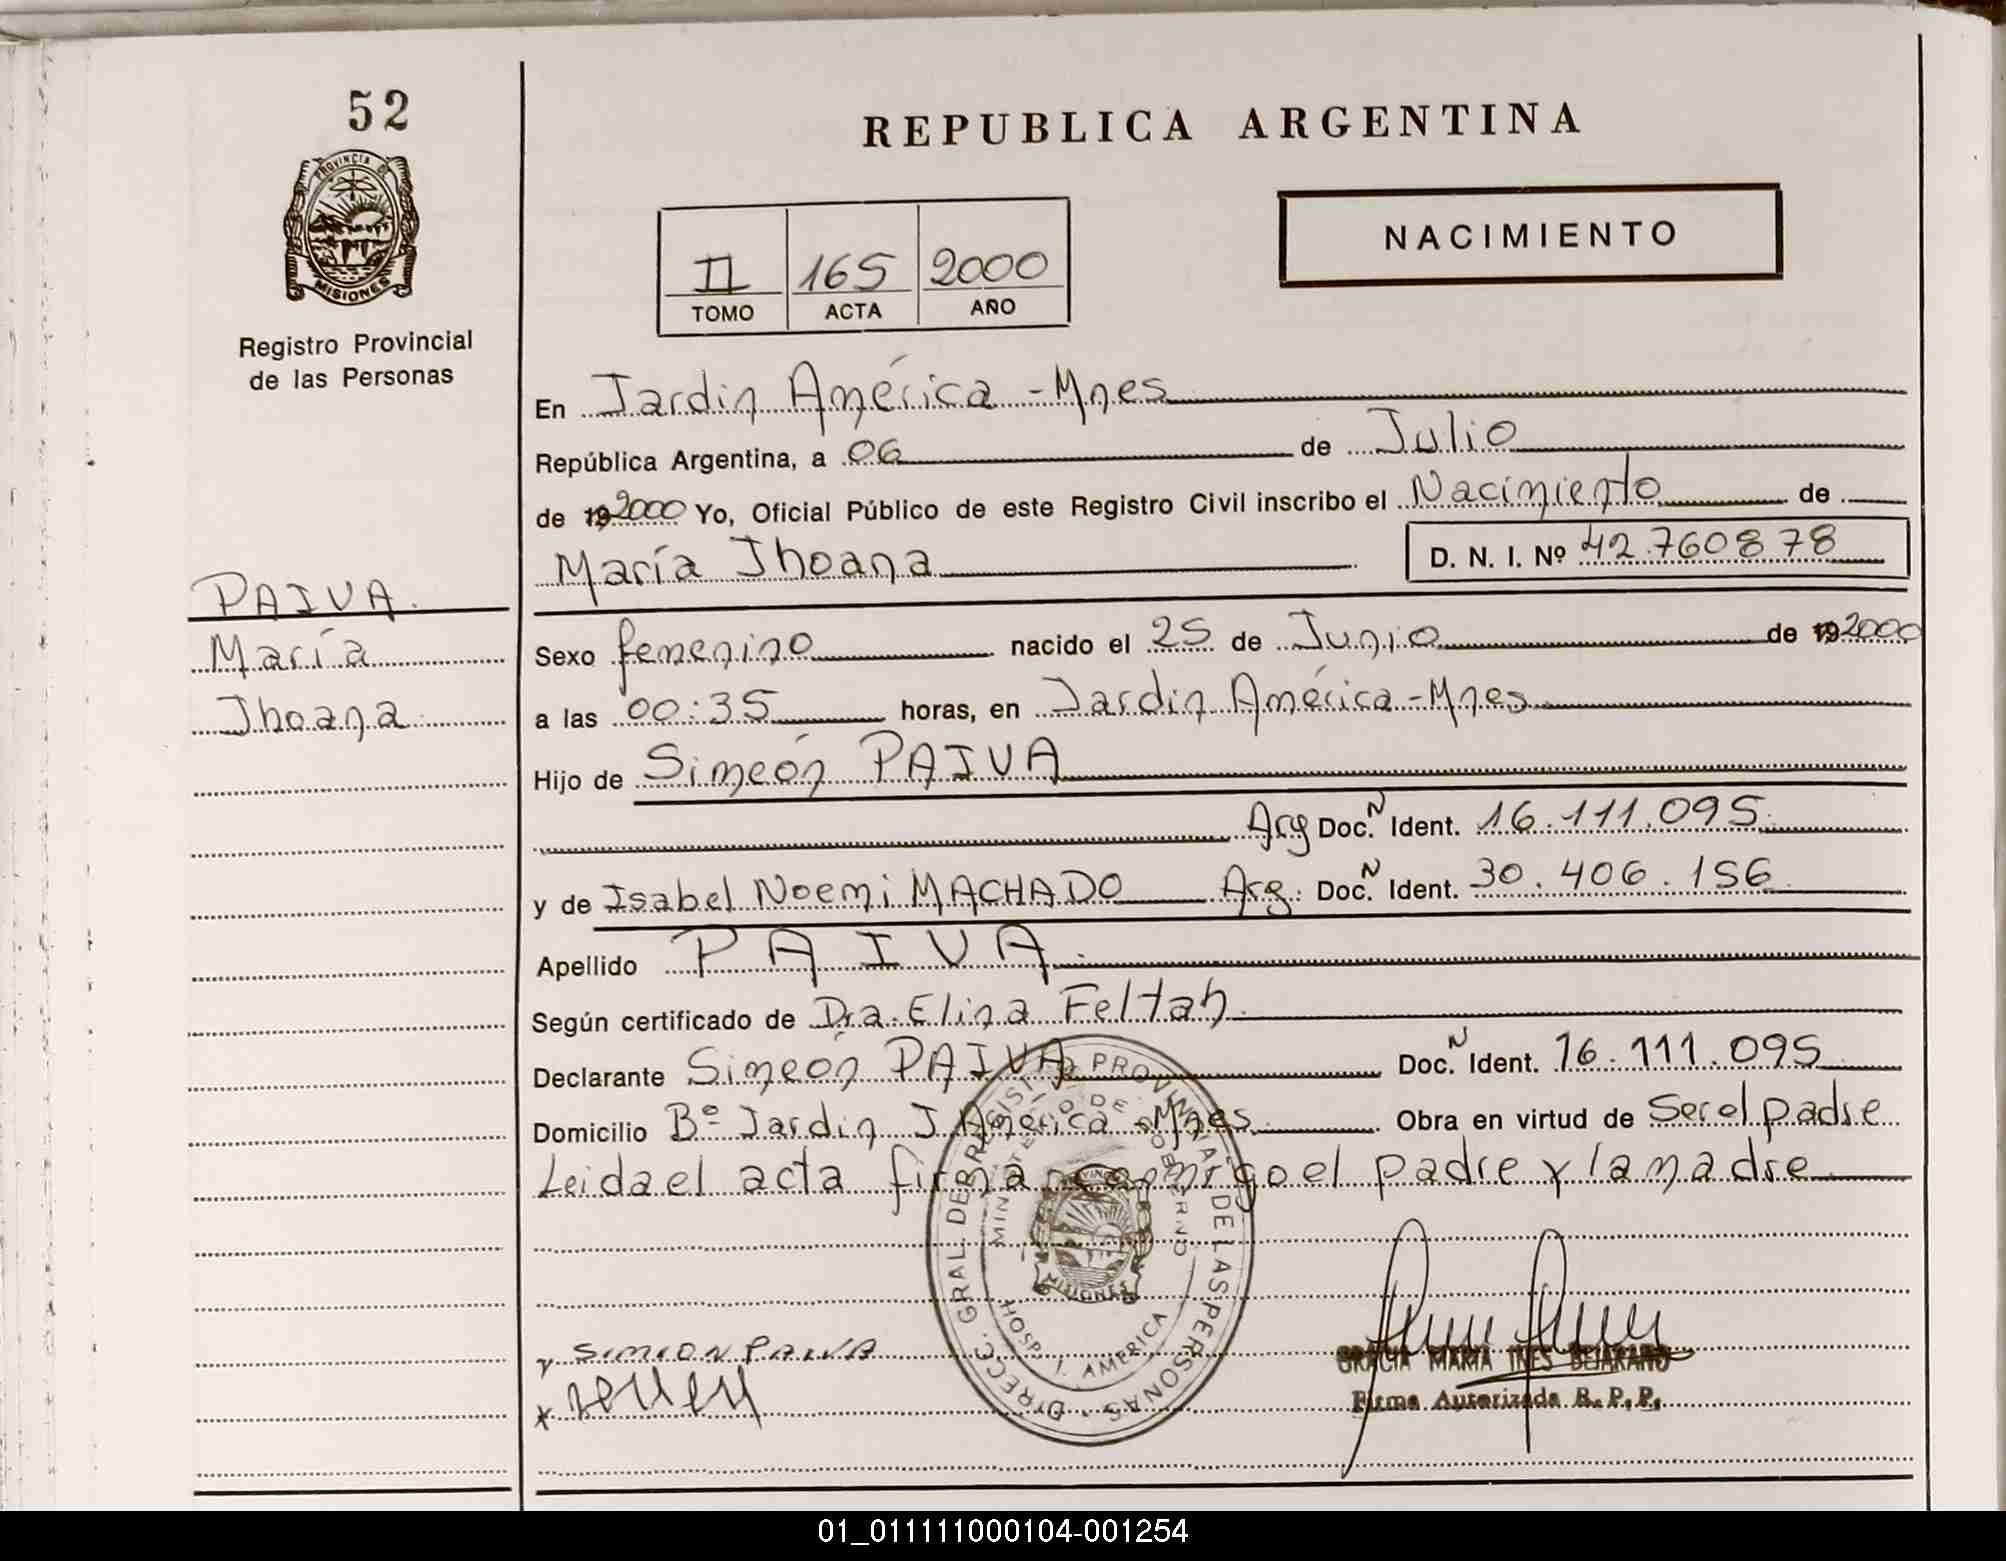 52
PROVINCIA DE
MISIONES
Registro Provincial
de las Personas
PAIVA.
María
Jhoana
REPUBLICA ARGENTINA
NACIMIENTO
II 165 2000
TOMO ACTA AÑO
En Jardin América - Mnes
República Argentina, a 06 de Julio
de 19 2000 Yo, Oficial Público de este Registro Civil inscribo el Nacimiento de
María Jhoana D. N. I. Nº 42.760878
Sexo femenino nacido el 25 de Junio de 19 2000
a las 00:35 horas, en Jardin América - Mnes
Hijo de Simeón PAIVA
Arg Doc. N Ident. 16.111.095
y de Isabel Noemi MACHADO Arg. Doc. N Ident. 30.406.156
Apellido PAIVA.
Según certificado de Dra. Elina Feltan
Declarante Simeón PAIVA Doc. N Ident. 16.111.095
Domicilio Bº Jardin J. América - Mnes Obra en virtud de Ser el padre
Leida el acta firma conmigo el padre y la madre
DIRECC. GRAL. DE REGISTRO PROVINCIAL DE LAS PERSONAS
MINISTERIO DE GOBIERNO
MISIONES
HOSP. J. AMERICA
SIMEON PAIVA
GRACIA MARIA INES BEJARANO
Firma Autorizada R. P. P.
01_011111000104-001254